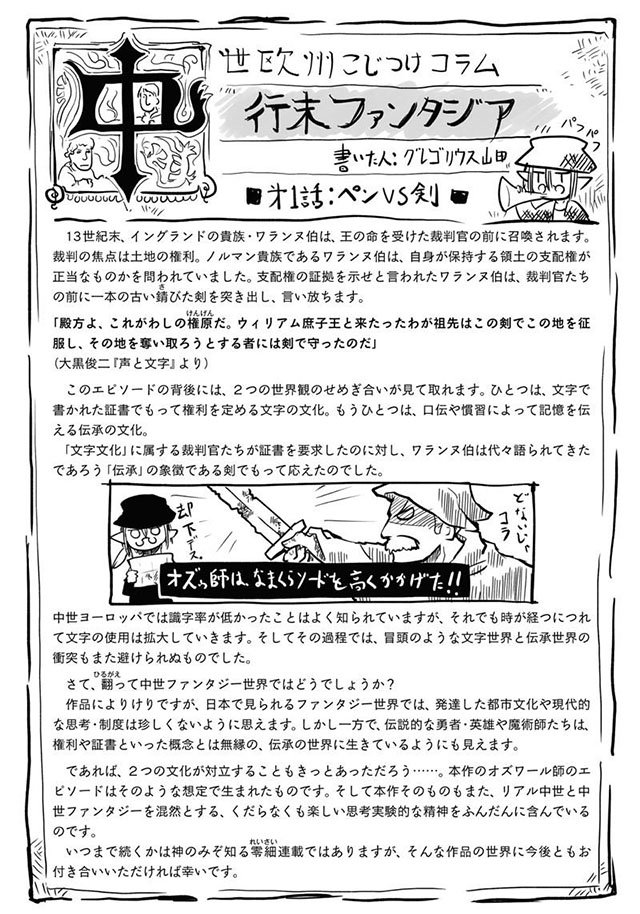 中世欧州こじつけコラム
行末ファンタジア
書いた人：グレゴリウス山田
パフパフ
■才1話：ペンVS剣■
13世紀末、イングランドの貴族・ワランヌ伯は、王の命を受けた裁判官の前に召喚されます。
裁判の焦点は土地の権利。ノルマン貴族であるワランヌ伯は、自身が保持する領土の支配権が
正当なものかを問われていました。支配権の証拠を示せと言われたワランヌ伯は、裁判官たち
の前に一本の古い錆びた剣を突き出し、言い放ちます。
「殿方よ、これがわしの権原だ。ウィリアム庶子王と来たったわが祖先はこの剣でこの地を征
服し、その地を奪い取ろうとする者には剣で守ったのだ」
（大黒俊二『声と文字』より）
このエピソードの背後には、２つの世界観のせめぎ合いが見て取れます。ひとつは、文字で
書かれた証書でもって権利を定める文字の文化。もうひとつは、口伝や慣習によって記憶を伝
える伝承の文化。
「文字文化」に属する裁判官たちが証書を要求したのに対し、ワランヌ伯は代々語られてきた
であろう「伝承」の象徴である剣でもって応えたのでした。
どないじゃコラ
却下デース
オズゥ師は、なまくらソードを高くかかげた!!
中世ヨーロッパでは識字率が低かったことはよく知られていますが、それでも時が経つにつれ
て文字の使用は拡大していきます。そしてその過程では、冒頭のような文字世界と伝承世界の
衝突もまた避けられぬものでした。
さて、翻って中世ファンタジー世界ではどうでしょうか？
作品によりけりですが、日本で見られるファンタジー世界では、発達した都市文化や現代的
な思考・制度は珍しくないように思えます。しかし一方で、伝説的な勇者・英雄や魔術師たちは、
権利や証書といった概念とは無縁の、伝承の世界に生きているようにも見えます。
であれば、２つの文化が対立することもきっとあっただろう……。本作のオズワール師のエ
ピソードはそのような想定で生まれたものです。そして本作そのものもまた、リアル中世と中
世ファンタジーを混然とする、くだらなくも楽しい思考実験的な精神をふんだんに含んでいる
のです。
いつまで続くかは神のみぞ知る零細連載ではありますが、そんな作品の世界に今後ともお
付き合いいただければ幸いです。